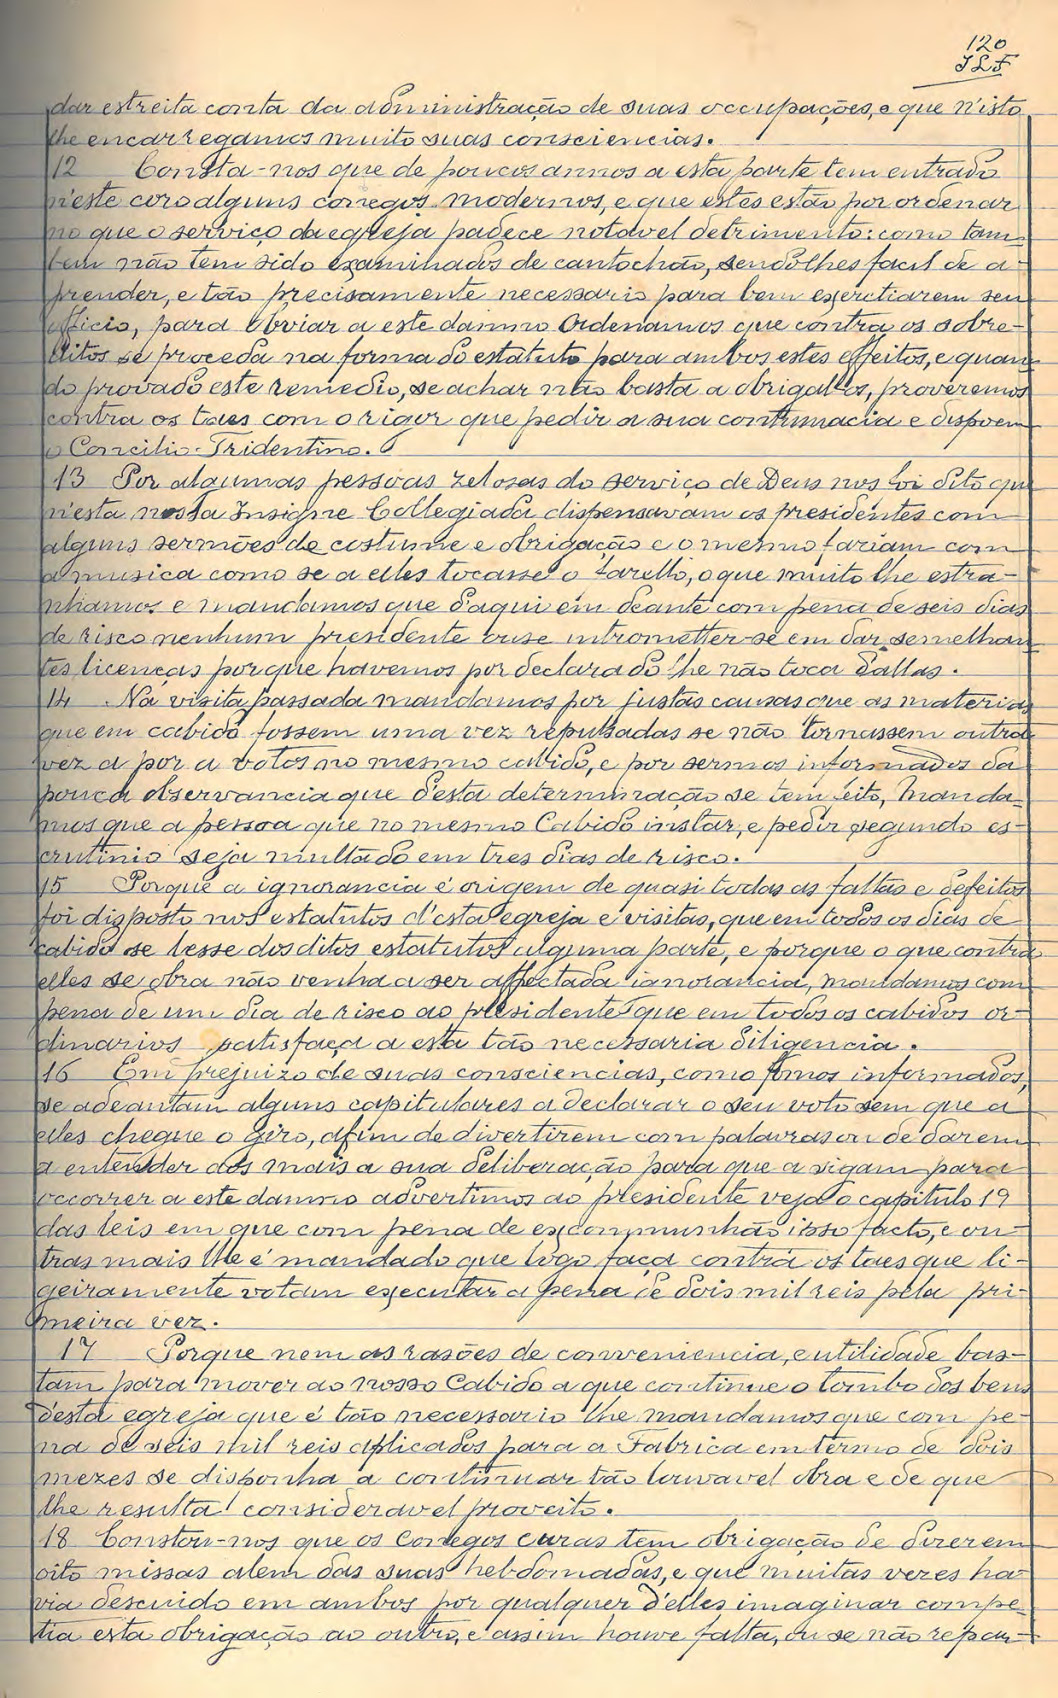 120
JLF
dar estreita conta da administração de suas occupações, e que n'isto
lhe encarregamos muito suas consciencias.
12 Consta-nos que de poucos annos a esta parte tem entrado
n'este coro alguns conegos modernos, e que estes estão por ordenar
no que o serviço da egreja padece notavel detrimento: como tam-
bem não tem sido examinados de cantochão, sendo lhes facil de a-
prender, e tão precisamente necessario para bem exerctiarem seu
officio, para obviar a este damno Ordenamos que contra os sobre-
ditos se proceda na forma do estatuto para ambos estes effeitos, e quan-
do provado este remedio, se achar não basta a obrigallos, proveremos
contra os taes com o rigor que pedir a sua contumacia e dispoem
o Concilio Tridentino.
13 Por algumas pessoas zelosas do serviço de Deus nos foi dito que
n'esta nossa Insigne Collegiada dispensavam os presidentes com
alguns sermões de costume e obrigação e o mesmo fariam com
a musica como se a elles tocasse o fazello, o que muito lhe estra-
nhamos e mandamos que d'aqui em deante com pena de seis dias
de risco nenhum presidente ouse intrometter-se em dar semelhan
tes licenças porque havemos por declarado lhe não toca dallas.
14 Na visita passada mandamos por justas causas que as materias
que em cabido fossem uma vez repulsadas se não tornassem outra
vez a por a votos no mesmo cabido, e por sermos informados da
pouca observancia que d'esta determinação se tem feito, Manda-
mos que a pessoa que no mesmo Cabido instar, e pedir segundo es-
crutinio seja multado em tres dias de risco.
15 Porque a ignorancia é origem de quasi todas as faltas e defeitos
foi disposto nos estatutos d'esta egreja e visitas, que em todos os dias de
cabido se lesse dos ditos estatutos alguma parte, e porque o que contra
elles se obra não venha a ser affectada ignorancia, mandamos com
pena de um dia de risco ao presidente que em todos os cabidos or-
dinarios satisfaça a esta tão necessaria diligencia.
16 Em prejuizo de suas consciencias, como fomos informados,
se adeantam alguns capitulares a declarar o seu voto sem que a
elles chegue o giro, afim de divertirem com palavras ou de darem
a entender aos mais a sua deliberação para que a sigam para
occorrer a este damno advertimos ao presidente veja o capitulo 19
das leis em que com pena de excommunhão ipso facto, e ou-
tras mais lhe é mandado que logo faça contra os taes que li-
geiramente votam executar a pena de dois mil reis pela pri-
meira vez.
17 Porque nem as rasões de conveniencia, e utilidade bas-
tam para mover ao nosso Cabido a que continue o tombo dos bens
d'esta egreja que é tão necessario lhe mandamos que com pe-
na de seis mil reis aplicados para a Fabrica em termo de dois
mezes se disponha a continuar tão louvavel obra e de que
lhe resulta consideravel proveito.
18 Constou-nos que os Conegos curas tem obrigação de dizerem
oito missas alem das suas hebdomadas, e que muitas vezes ha-
via descuido em ambos por qualquer d'elles imaginar compe-
tia esta obrigação ao outro, e assim houve falta, ou se não repar-